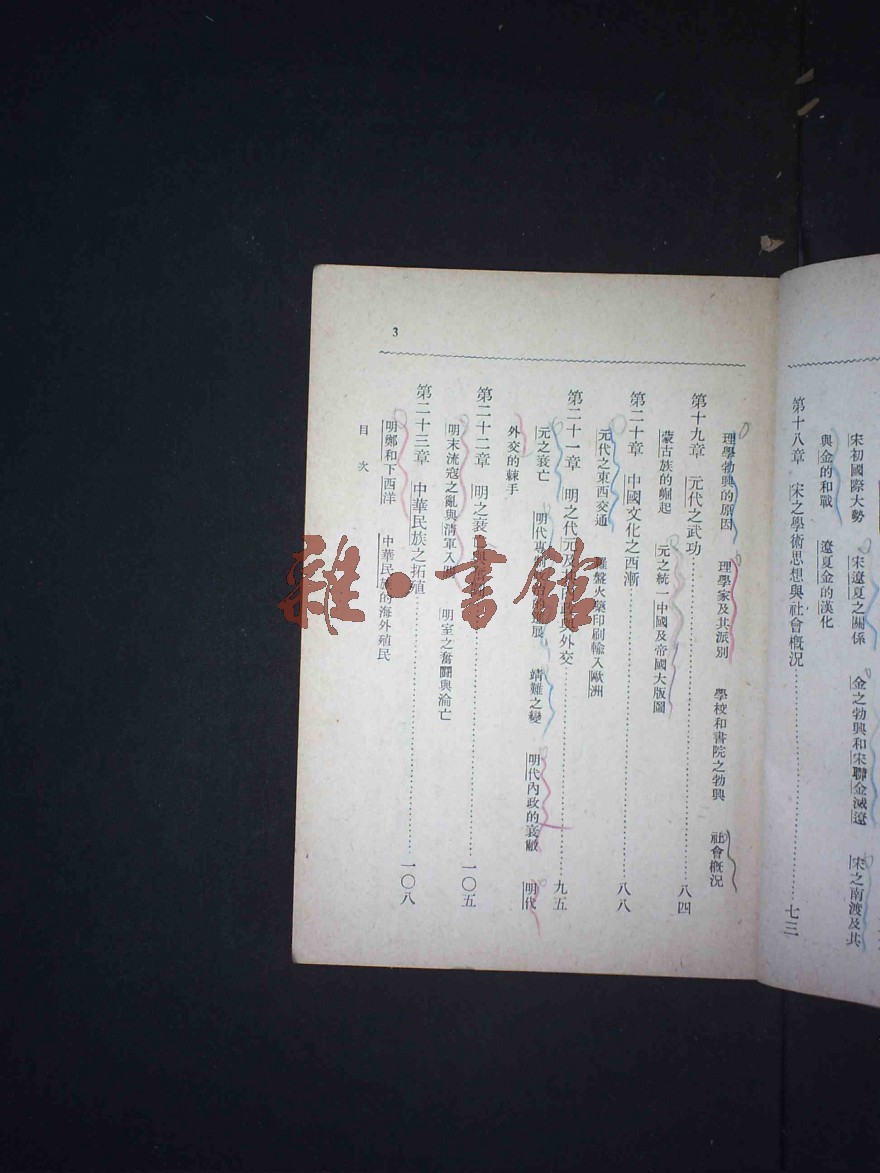 宋初國際大勢　宋遼夏之關係　金之勃興和宋聯金滅遼　宋之南渡及其
與金的和戰　遼夏金的漢化
第十八章　宋之學術思想與社會概況…………七三
3
理學勃興的原因　理學家及其派別　學校和書院之勃興　社會概況
第十九章　元代之武功…………八四
蒙古族的崛起　元之統一中國及帝國大版圖
第二十章　中國文化之西漸…………八八
元代之東西交通　羅盤火藥印刷輸入歐洲
第二十一章　明之代元及其內政與外交…………九五
元之衰亡　明代專制政治的進展　靖難之變　明代內政的衰敝　明代
外交的棘手
第二十二章　明之衰…………一〇五
明末流寇之亂與清軍入關　明室之奮鬭與淪亡
第二十三章　中華民族之拓殖…………一〇八
明鄭和下西洋　中華民族的海外殖民
目次
雜·書館